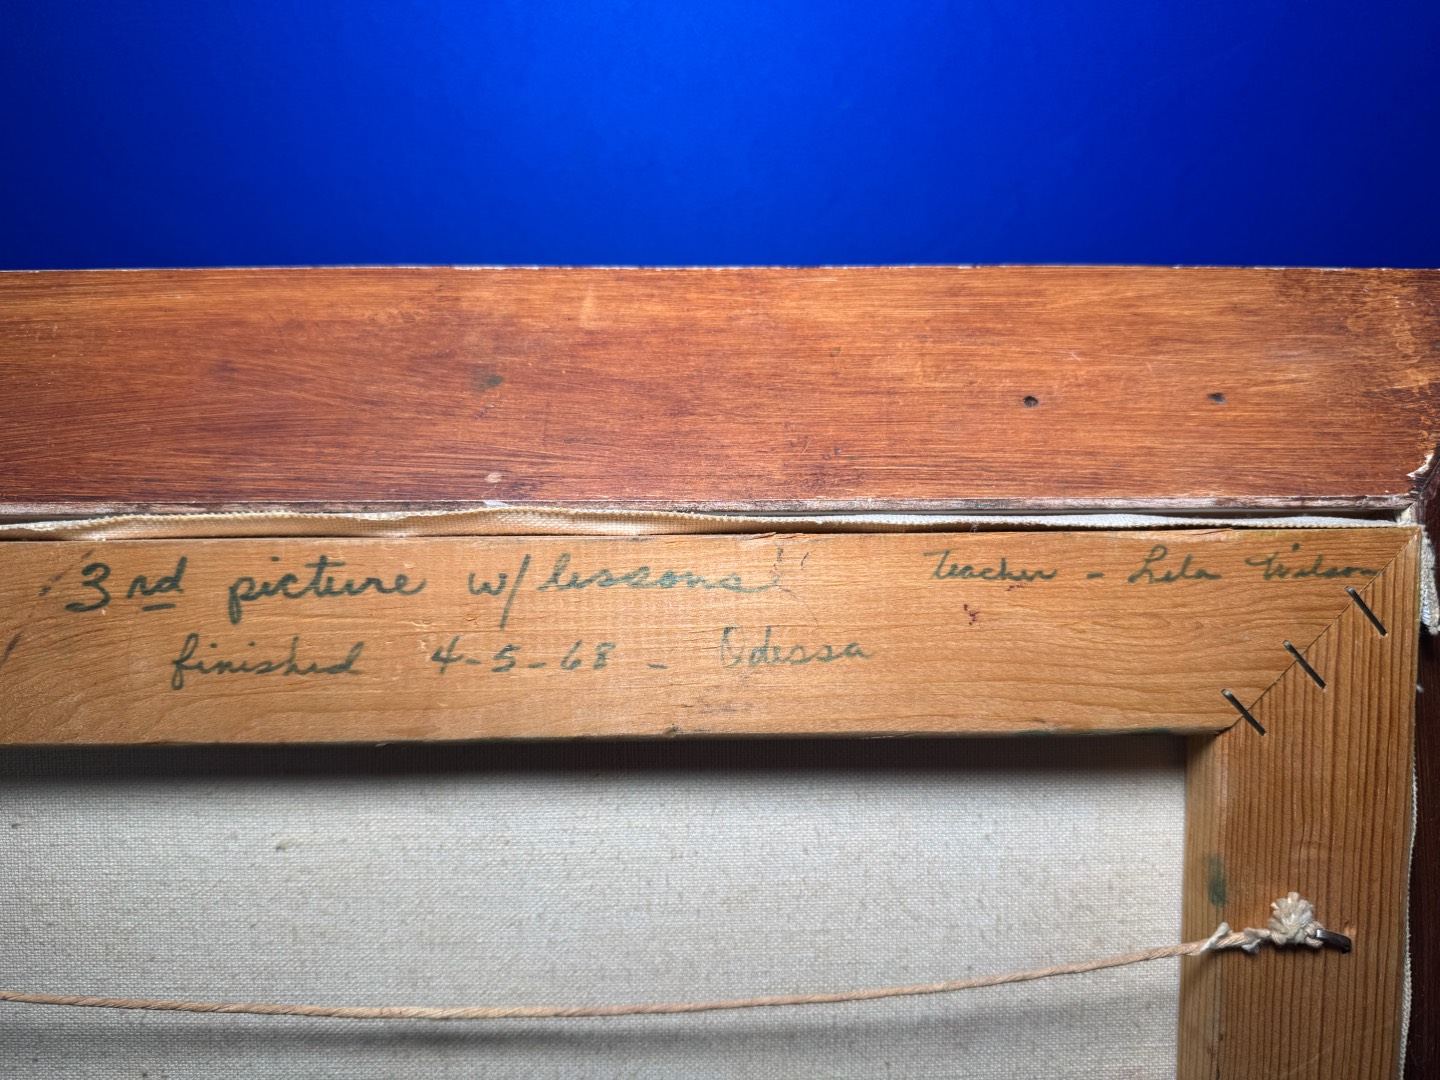 3rd picture w/ lessons
Teacher - Lela Wilson
finished 4-5-68 - Odessa